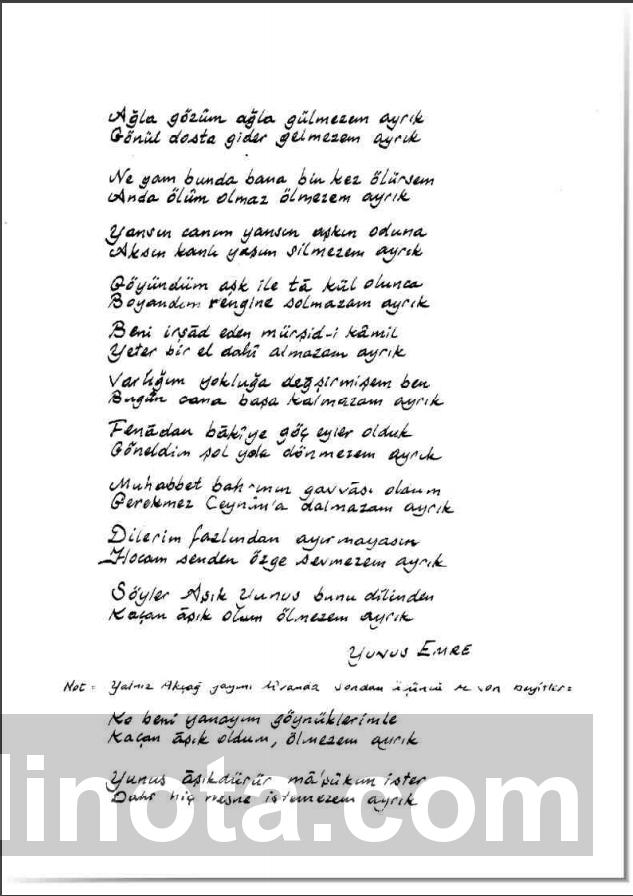 Ağla gözüm ağla gülmezem ayrık
Gönül dosta gider gelmezem ayrık
Ne gam bunda bana bin kez ölürsem
Anda ölüm olmaz ölmezem ayrık
Yansın canım yansın aşkın oduna
Aksın kanlı yaşım silmezem ayrık
Göyündüm aşk ile tâ kül olunca
Boyandım rengine solmazam ayrık
Beni irşâd eden mürşid-i kâmil
Yeter bir el dahî almazam ayrık
Varlığım yokluğa değşirmişem ben
Bugün cana başa kalmazam ayrık
Fenâdan bâkîye göç eyler olduk
Göneldim şol yola dönmezem ayrık
Muhabbet bahrının gavvâsı oldum
Gerekmez Ceyhun'a dalmazam ayrık
Dilerim fazlından ayırmayasın
Hocam senden özge sevmezem ayrık
Söyler Aşık Yunus bunu dilinden
Kaçan âşık olam ölmezem ayrık
YUNUS EMRE
Not: Yalnız Akçağ yayını divanda sondan üçüncü ve son beyitler:
Ko beni yanayım göynüklerimle
Kaçan âşık oldum, ölmezem ayrık
Yunus âşıkdürür mâ'şûkun ister
Dahi hiç nesne istemezem ayrık
linota.com